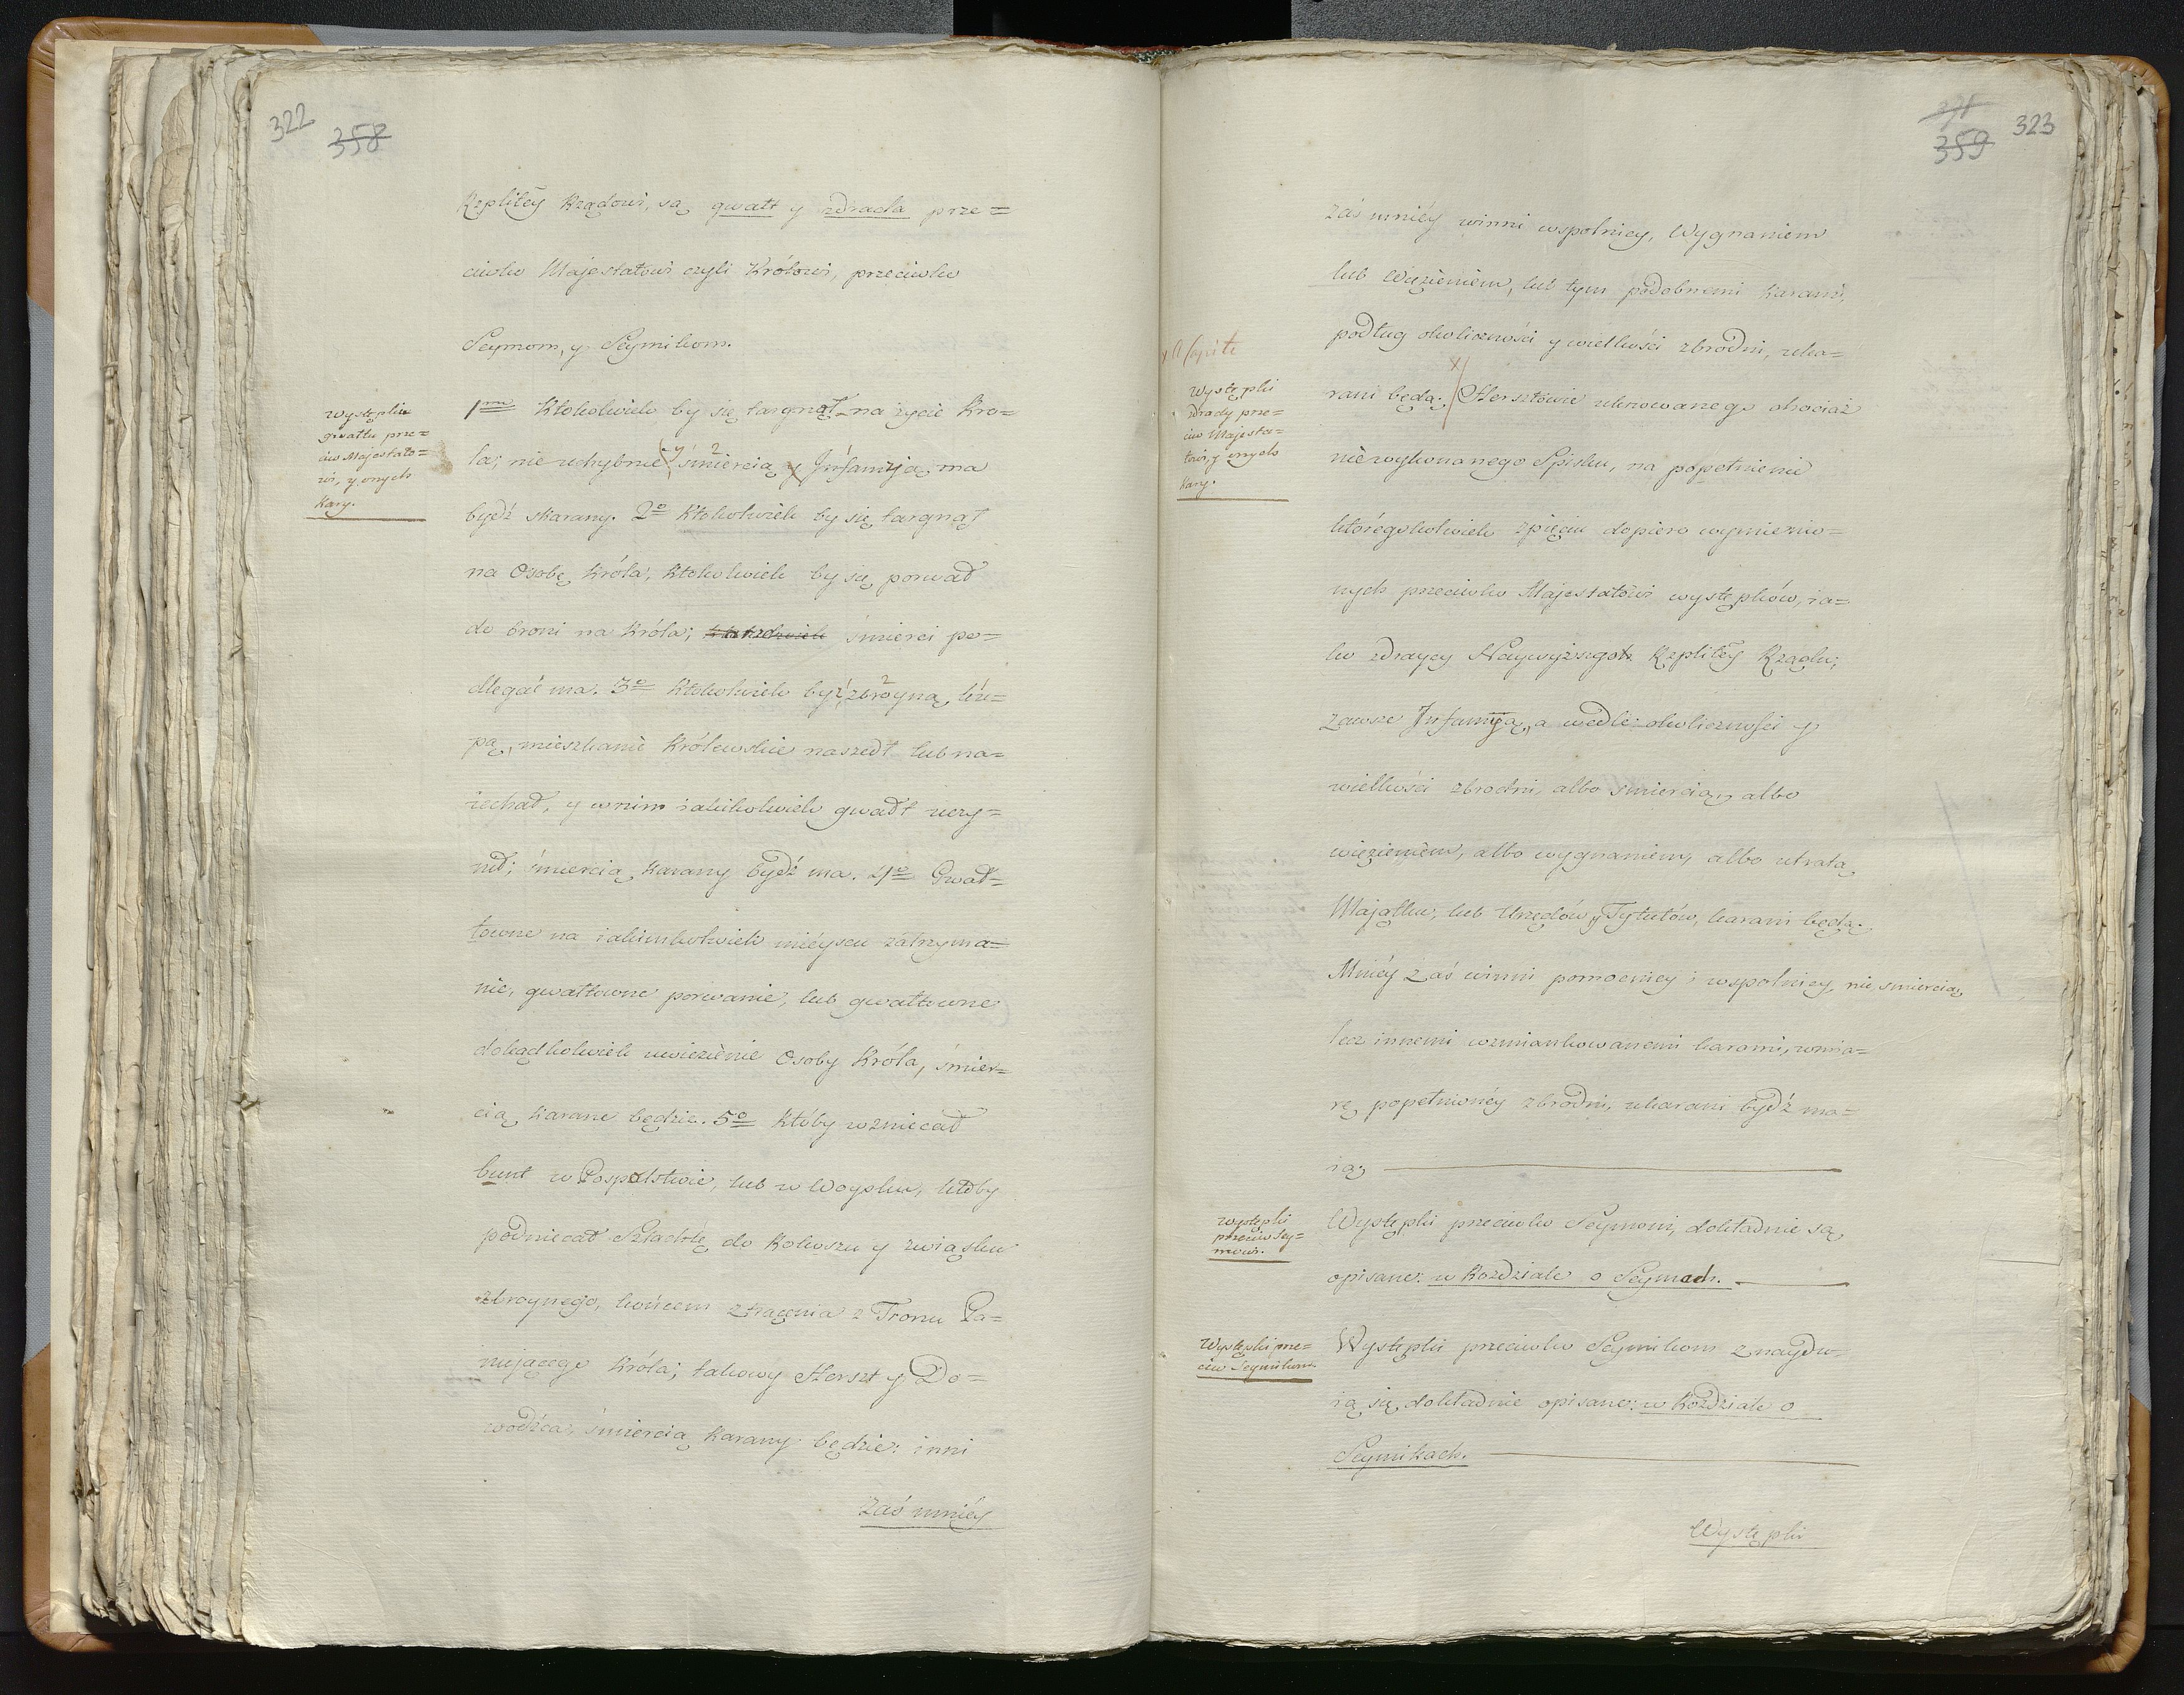 322
358
Rzpltėy Rządowi, są gwałt y zdrada prze=
ciwko Majestatowi czyli Królowi, przeciwko
Seymom, y Seymikom.
Występki
gwałtu prze=
ciw Majestato=
wi, y onych
kary.
1mo Ktokolwiek by się targnął na życie Kró=
la; nieuchybnie y śmiercią y Jnfamją ma
bydź skarany. 2o Ktokolwiek by się targnął
na Osobę Króla, Ktokolwiek by się porwał
do broni na Króla; śmierci po=
dlegać ma. 3o Ktokolwiek by zbroyną, ku=
pą, mieszkanie Królewskie naszedł lub na=
iechał, y w nim iakikolwiek gwałt uczy=
nił; śmiercią karany bydź ma. 4o Gwał=
towne na iakimkolwiek mieyscu zatrzyma=
nie, gwałtowne porwanie, lub gwałtowne
dokądkolwiek uwiezienie Osoby Króla, śmier=
cią karane będzie. 5o Ktoby wzniecał
bunt w Pospolstwie, lub w Woysku, ktoby
podniecał Szlachtę do Rokoszu y związku
zbroynego, końcem ztrącenia z Tronu Pa=
nującego Króla; takowy Herszt y Do=
wodźca, śmiercią karany będzie: inni
zaś mniéy
359
323
zaś mniéy winni wspolnicy, Wygnaniem
lub Więzieniem, lub tym podobnemi karami,
podług okoliczności y wielkości zbrodni, uka=
rani będą. Hersztowie uknowanego chociaż
Występki
zdrady prze=
ciw Majesta=
towi, y onych
kary.
niewykonanego Spisku, na popełnienie
któregokolwiek z pięciu dopiero wymienio=
nych przeciwko Majestatowi występków, ia=
ko zdraycy Naywyższego Rzpltėy Rządu;
zawsze Jnfamją, a wedle okoliczności y
wielkości zbrodni, albo śmiercią, albo
więzieniem, albo wygnaniem, albo utratą
Majątku, lub Urzędów y Tytułów, karani będą.
Mniéy zaś winni pomocnicy i wspolnicy, nie śmiercią,
lecz innemi wzmiankowanemi karami, w mia=
rę popełnionéy zbrodni, ukarani bydź ma=
ią.
Występki
przeciw Sey=
mowi.
Występki przeciwko Seymowi, dokładnie są
opisane: w Rozdziale o Seymach.
Występki prze=
ciw Seymikom.
Występki przeciwko Seymikom znaydu=
ią się, dokładnie opisane: w Rozdziale o
Seymikach.
Występki